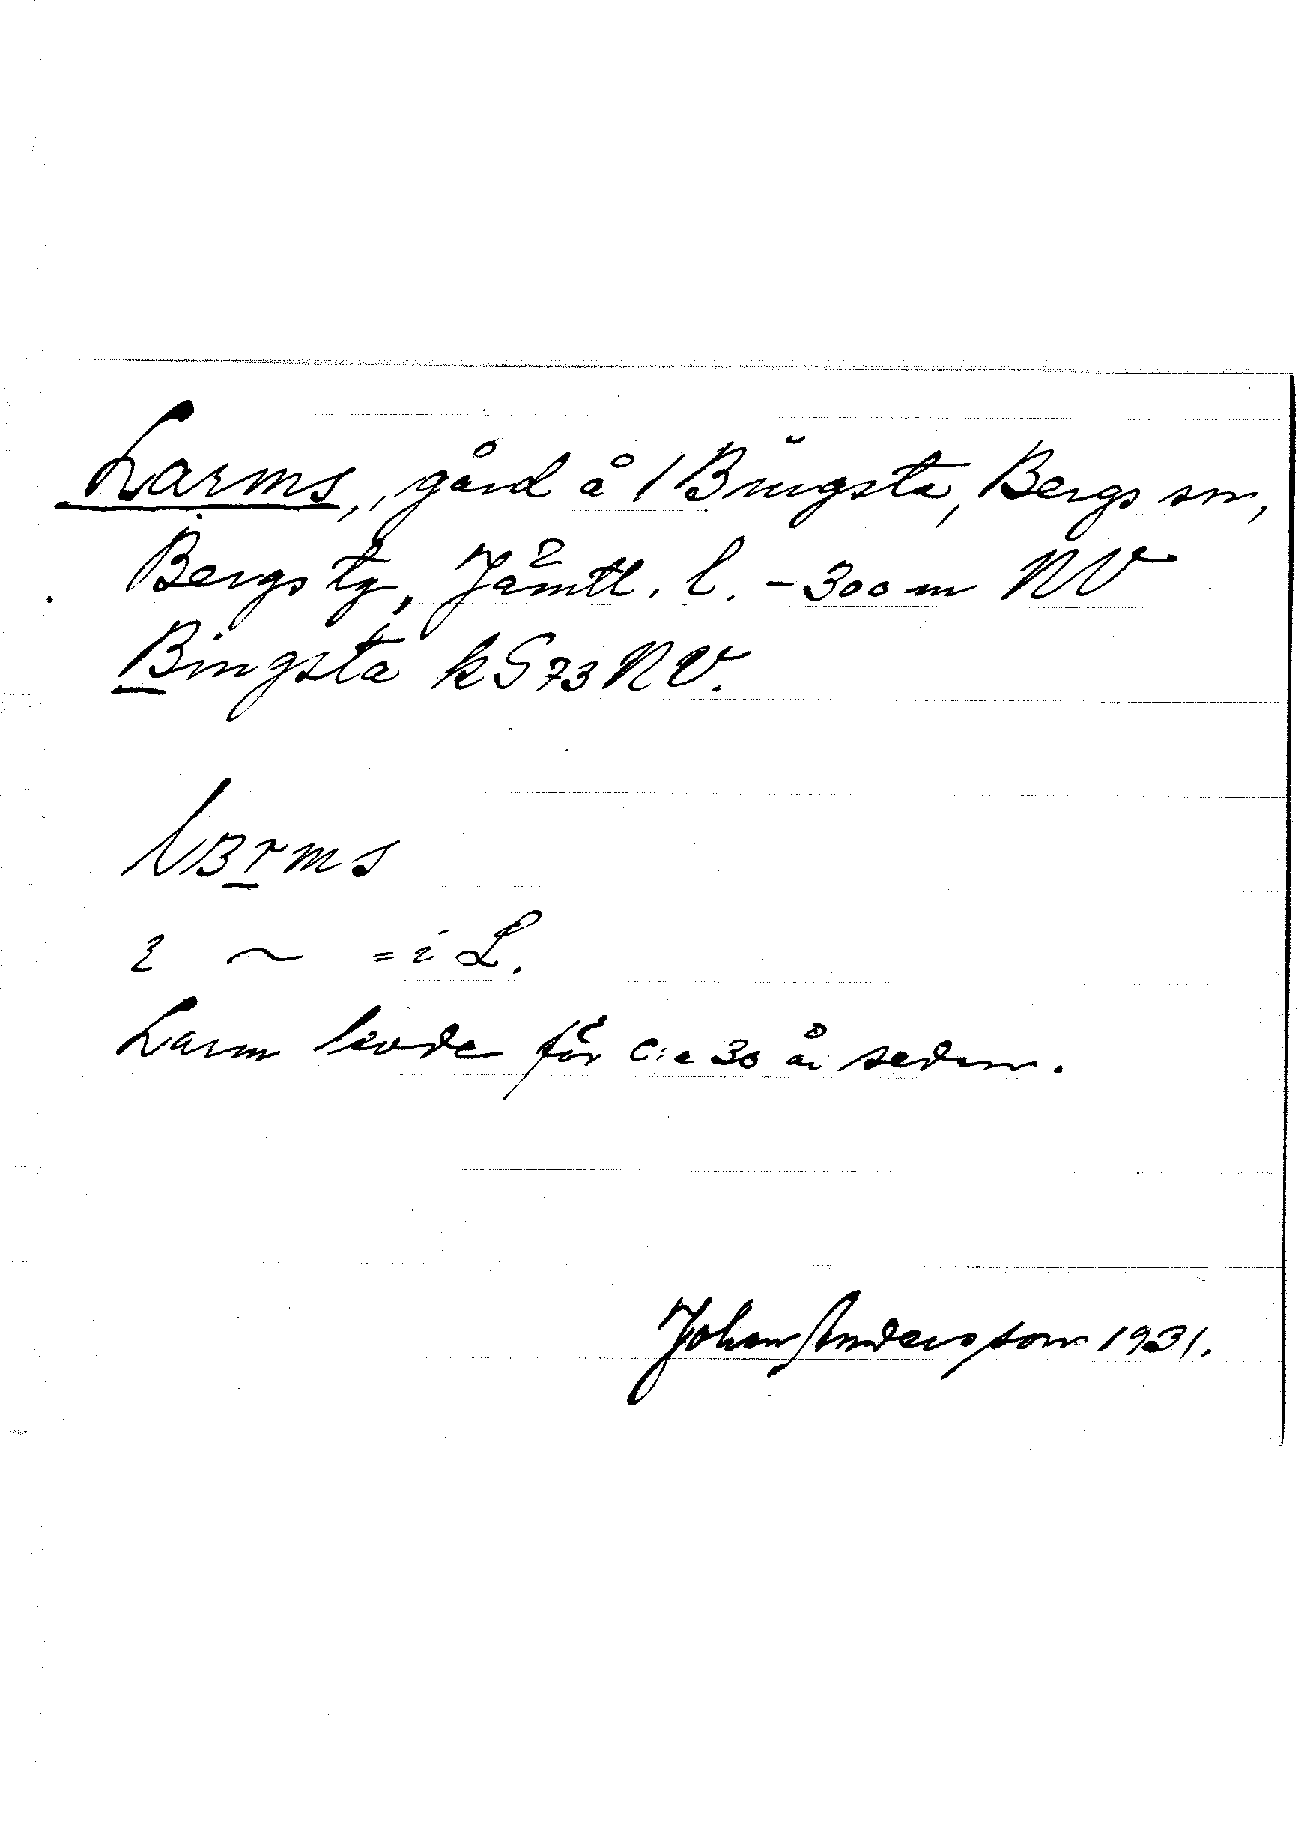 Larms, gård å 1 Bingsta, Bergs sn,
Bergs tg, Jämtl. l. – 300 m NV
Bingsta k S 73 NV.
i ~ = i L.
Larm levde för c:a 30 år sedan.
Johan Andersson 1931.